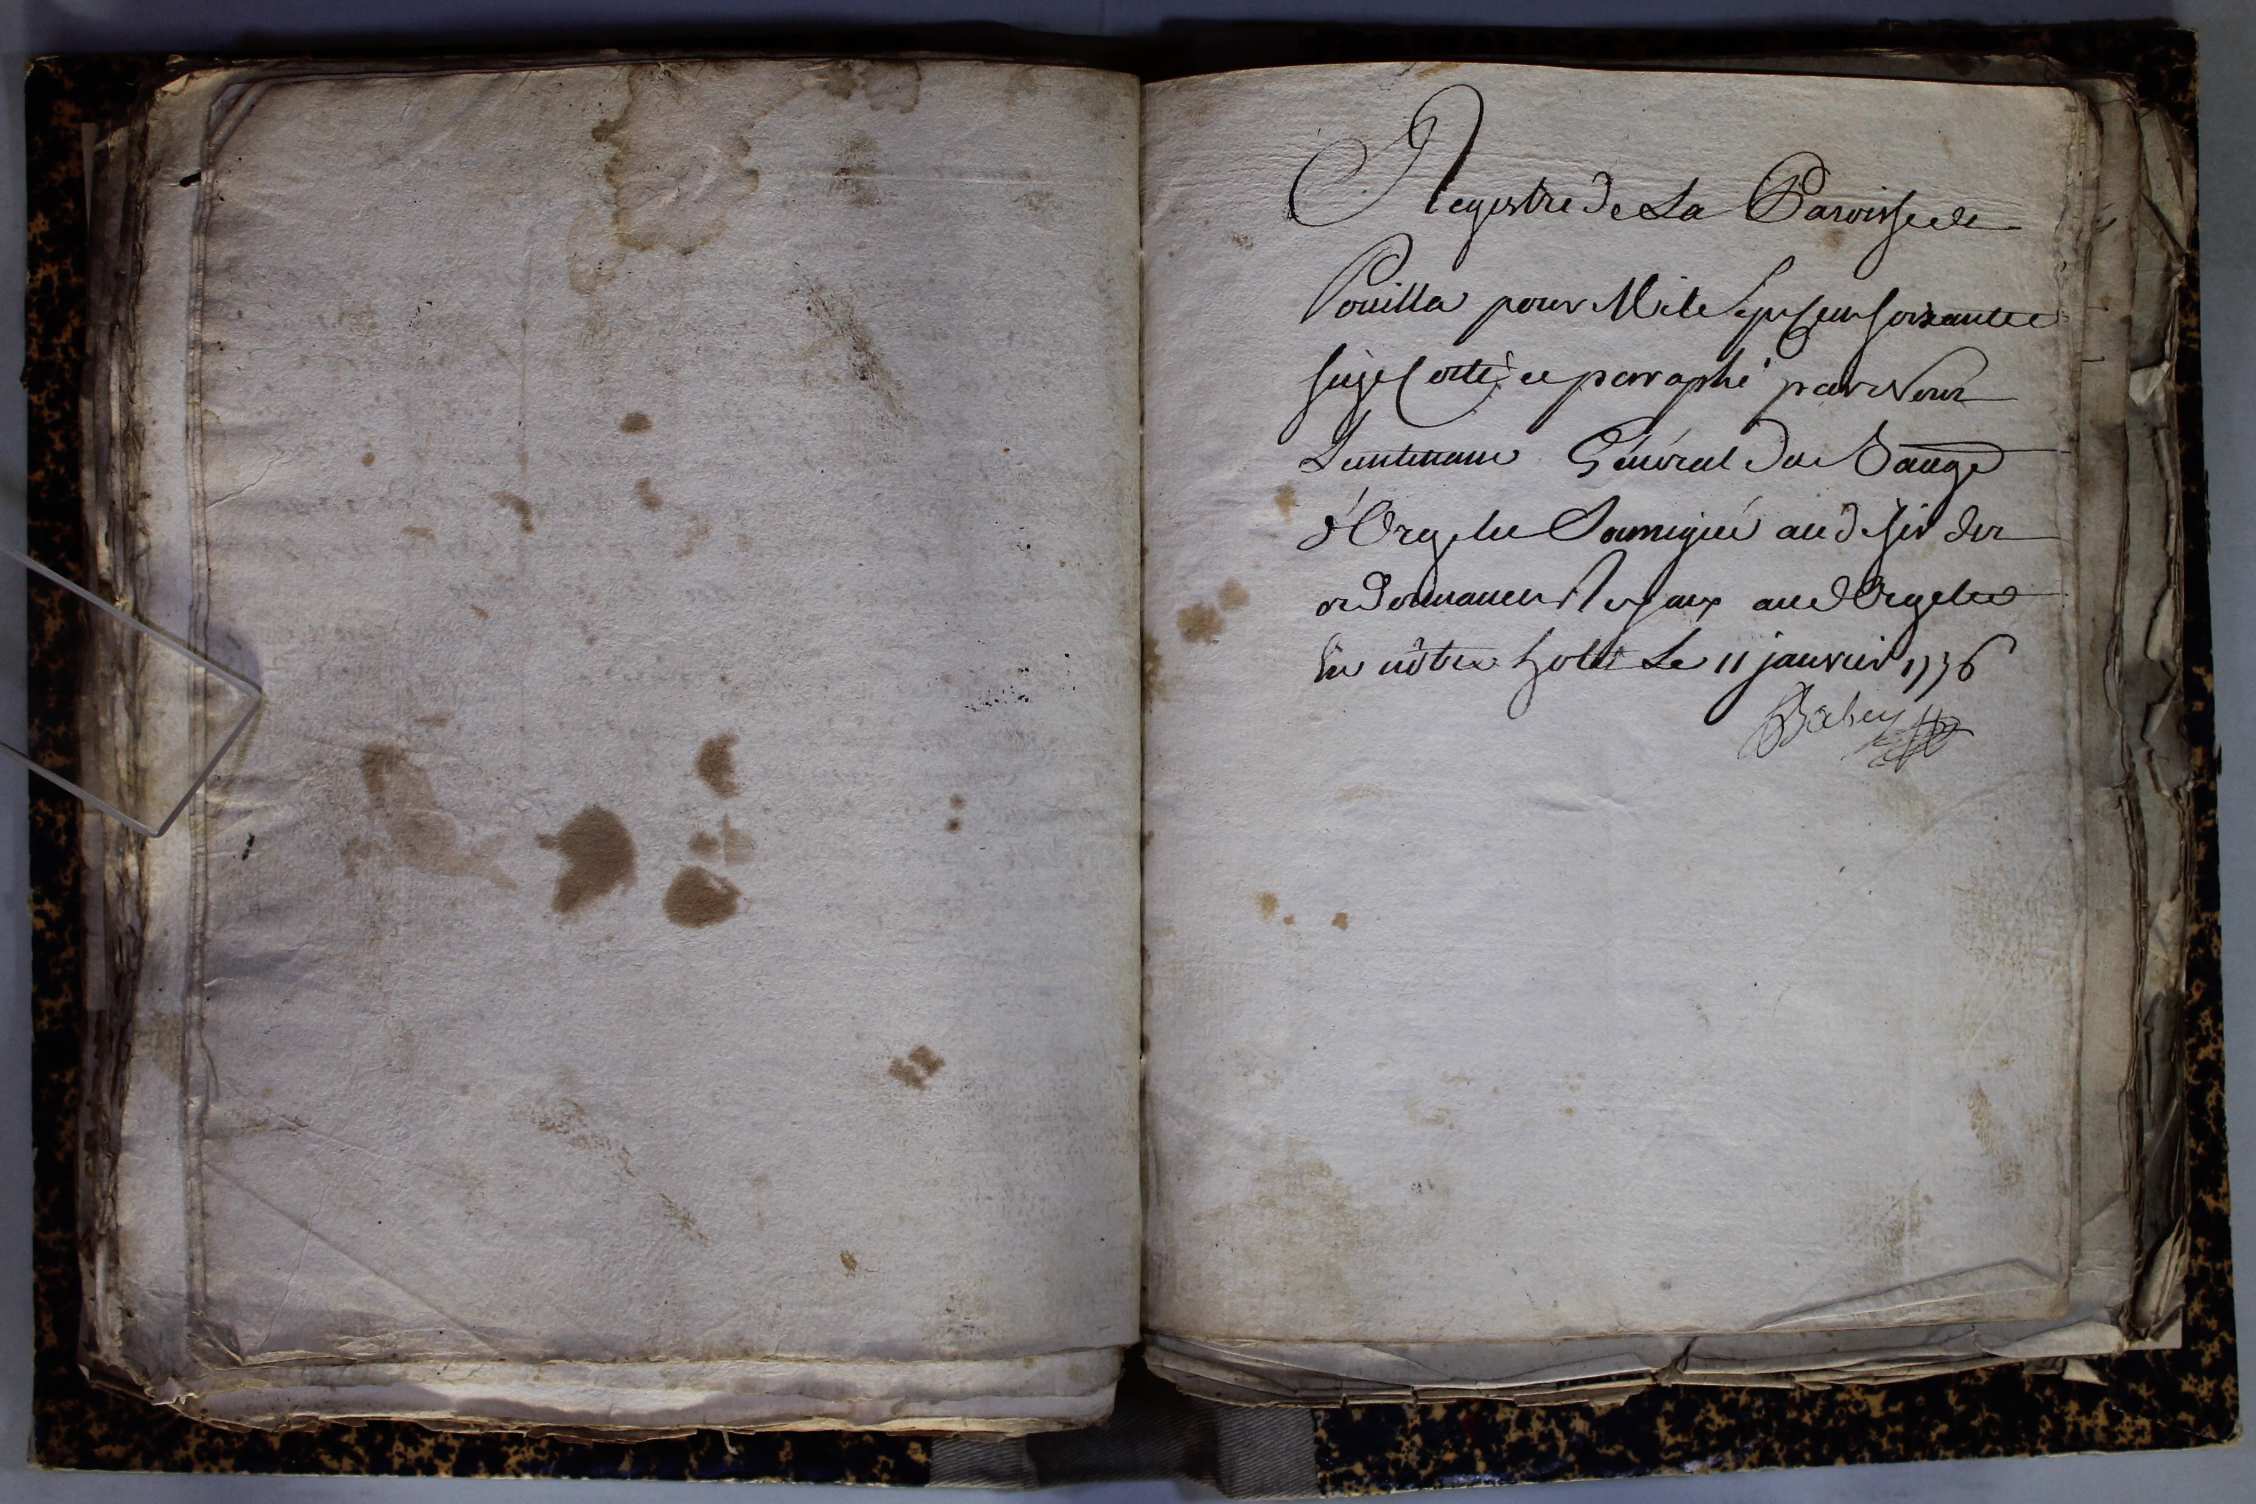 Registre de La Paroisse de
Pouilla pour Mile sept cent soixante
seize Cotté et parraphé par Nous
Lieutenant Général du Bailliage
d'Orgelet Soussigné au désir des
ordonnances Royaux aud Orgelet
En nôtre hotel Le 11 janvier 1776
Babey